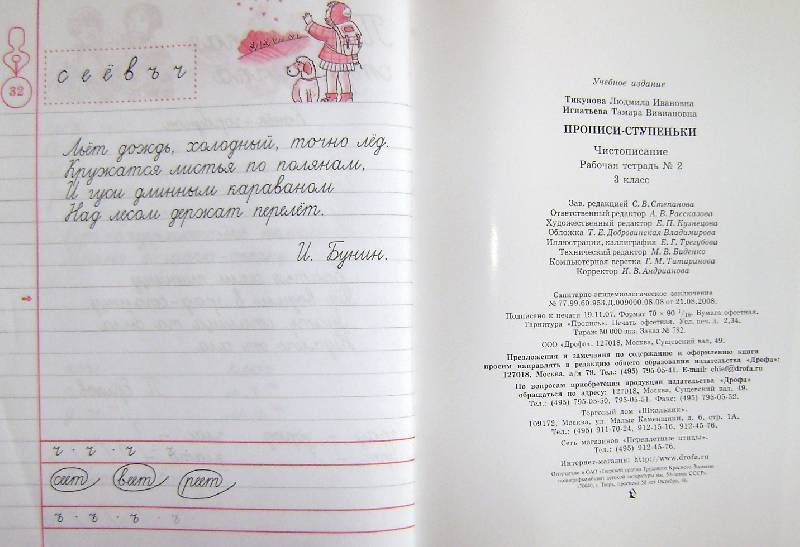 32
с е ё в ъ ч
Льёт дождь, холодный, точно лёд.
Кружатся листья по полянам,
И гуси длинным караваном
Над лесом держат перелёт.
И. Бунин.
ъ · ъ · ъ ъ
сеет веет реет
ъ · ъ · ъ · ъ
Учебное издание
Тикунова Людмила Ивановна
Игнатьева Тамара Вивиановна
ПРОПИСИ-СТУПЕНЬКИ
Чистописание
Рабочая тетрадь № 2
3 класс
Зав. редакцией С. В. Степанова
Ответственный редактор А. В. Рассказова
Художественный редактор Е. П. Кузнецова
Обложка Т. Е. Добровинская-Владимирова
Иллюстрации, каллиграфия Е. Г. Трегубова
Технический редактор М. В. Биденко
Компьютерная верстка Г. М. Татаринова
Корректор И. В. Андрианова
Санитарно-эпидемиологическое заключение
№ 77.99.60.953.Д.009000.08.08 от 21.08.2008.
Подписано к печати 19.11.07. Формат 70 × 90 1/16. Бумага офсетная.
Гарнитура «Пропись». Печать офсетная. Усл. печ. л. 2,34.
Тираж 000 экз. Заказ № 782.
ООО «Дрофа». 127018, Москва, Сущевский вал, 49.
Предложения и замечания по содержанию и оформлению книги
просим направлять в редакцию общего образования издательства «Дрофа»:
127018, Москва, а/я 79. Тел.: (495) 795-05-41. E-mail: chief@drofa.ru
По вопросам приобретения продукции издательства «Дрофа»
обращаться по адресу: 127018, Москва, Сущевский вал, 49.
Тел.: (495) 795-05-50, 795-05-51. Факс: (495) 795-05-52.
Торговый дом «Школьник».
109172, Москва, ул. Малые Каменщики, д. 6, стр. 1А.
Тел.: (495) 911-70-24, 912-15-16, 912-45-76.
Сеть магазинов «Переплетные птицы».
Тел.: (495) 912-45-76.
Интернет-магазин: http://www.drofa.ru